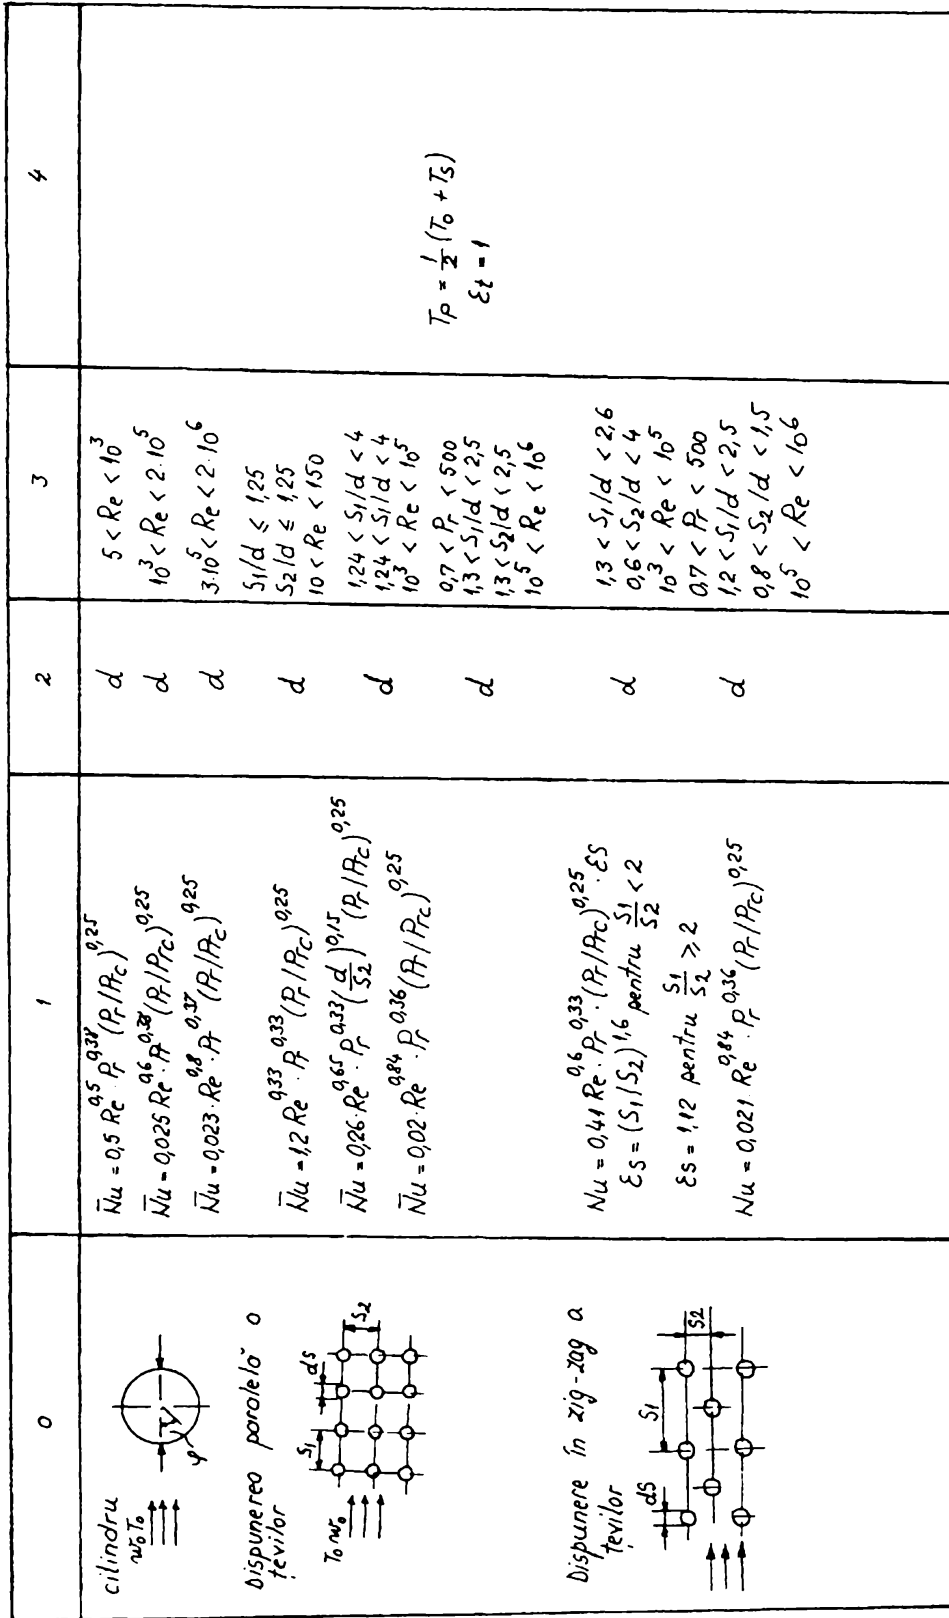 0
1
2
3
4
cilindru
w₀ T₀
φ
N̄u = 0,5 Re^0,5 · Pr^0,38 (Pr/Prc)^0,25
d
5 < Re < 10³
N̄u = 0,025 Re^0,6 · Pr^0,38 (Pr/Prc)^0,25
d
10³ < Re < 2·10⁵
N̄u = 0,023 · Re^0,8 · Pr^0,37 (Pr/Prc)^0,25
d
3·10⁵ < Re < 2·10⁶
Dispunerea paralelă a
țevilor
T₀ w₀
S1
dS
S2
N̄u = 1,2 Re^0,33 · Pr^0,33 (Pr/Prc)^0,25
d
S1/d ≤ 1,25
S2/d ≤ 1,25
10 < Re < 150
N̄u = 0,26 · Re^0,65 · Pr^0,33 (d/S2)^0,15 (Pr/Prc)^0,25
d
1,24 < S1/d < 4
1,24 < S1/d < 4
10³ < Re < 10⁵
N̄u = 0,02 · Re^0,84 · Pr^0,36 (Pr/Prc)^0,25
d
0,7 < Pr < 500
1,3 < S1/d < 2,5
1,3 < S2/d < 2,5
10⁵ < Re < 10⁶
Tp = 1/2 (T₀ + Ts)
εt = 1
Dispunere în zig-zag a
țevilor
dS
S1
S2
Nu = 0,41 Re^0,6 · Pr^0,33 · (Pr/Prc)^0,25 · εS
εS = (S1/S2)^1,6 pentru S1/S2 < 2
εS = 1,12 pentru S1/S2 ≥ 2
d
1,3 < S1/d < 2,6
0,6 < S2/d < 4
10³ < Re < 10⁵
Nu = 0,021 · Re^0,84 · Pr^0,36 (Pr/Prc)^0,25
d
0,7 < Pr < 500
1,2 < S1/d < 2,5
0,8 < S2/d < 1,5
10⁵ < Re < 10⁶